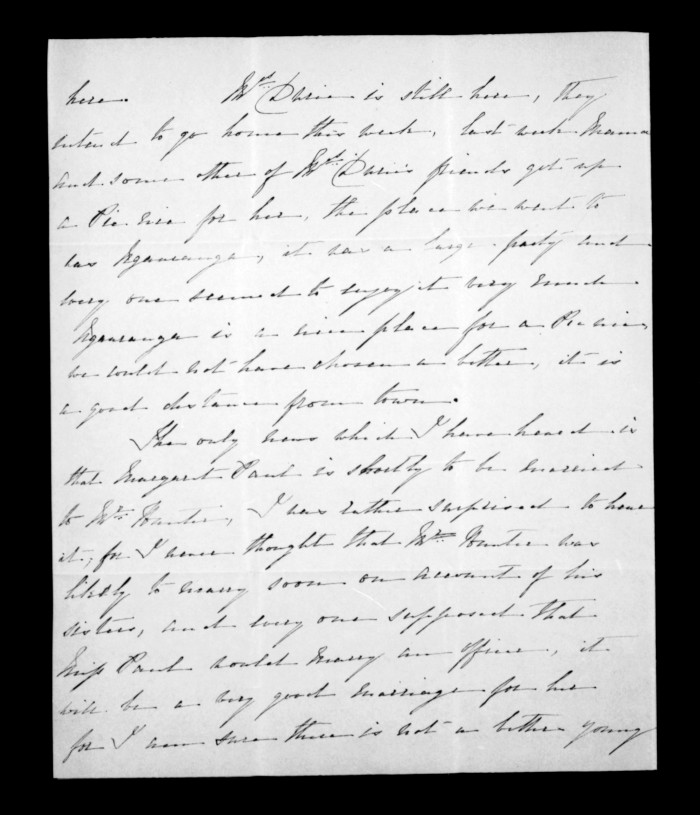 here. Mrs. Durie is still here, they
intend to go home this week, last week Mama
and some other of Mrs. Durie's friends got up
a Pic nic for her, the place we went to
was Ngauranga, it was a large party and
every one seemed to enjoy it very much
Ngauranga is a nice place for a Pic nic,
we could not have chosen a better, it is
a good distance from town.
The only news which I have heard is
that Margaret Paul is shortly to be married
to Mr. Hunter, I was rather surprised to hear
it, for I never thought that Mr. Hunter was
likely to marry soon on account of his
sisters, and every one supposed that
Miss Paul would marry an officer, it
will be a very good marriage for her
for I am sure there is not a better young